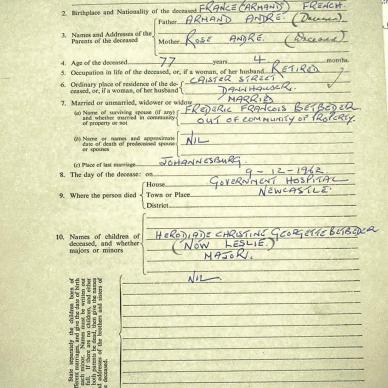 2. Birthplace and Nationality of the deceased FRANCE (ARMAND) FRENCH.
Father ARMAND ANDRE. (Deceased)
3. Names and Addresses of the Parents of the deceased
Mother ROSE ANDRE. (Deceased)
4. Age of the deceased 77 years 4 months.
5. Occupation in life of the deceased, or, if a woman, of her husband RETIRED
6. Ordinary place of residence of the deceased, or, if a woman, of her husband CAISTER STREET
DANNHAUSER.
7. Married or unmarried, widower or widow MARRIED
(a) Name of surviving spouse (if any) and whether married in community of property or not FREDERIC FRANCOIS BETBEDER
OUT OF COMMUNITY OF PROPERTY.
(b) Name or names and approximate date of death of predeceased spouse or spouses NIL
(c) Place of last marriage JOHANNESBURG.
8. The day of the decease: on 9-12-1962
9. Where the person died
House GOVERNMENT HOSPITAL
Town or Place NEWCASTLE.
District
10. Names of children of deceased, and whether majors or minors
HERODIADE CHRISTINE GEORGETTE BETBEDER
(NOW LESLIE.)
MAJOR.
NIL.
State separately the children born of